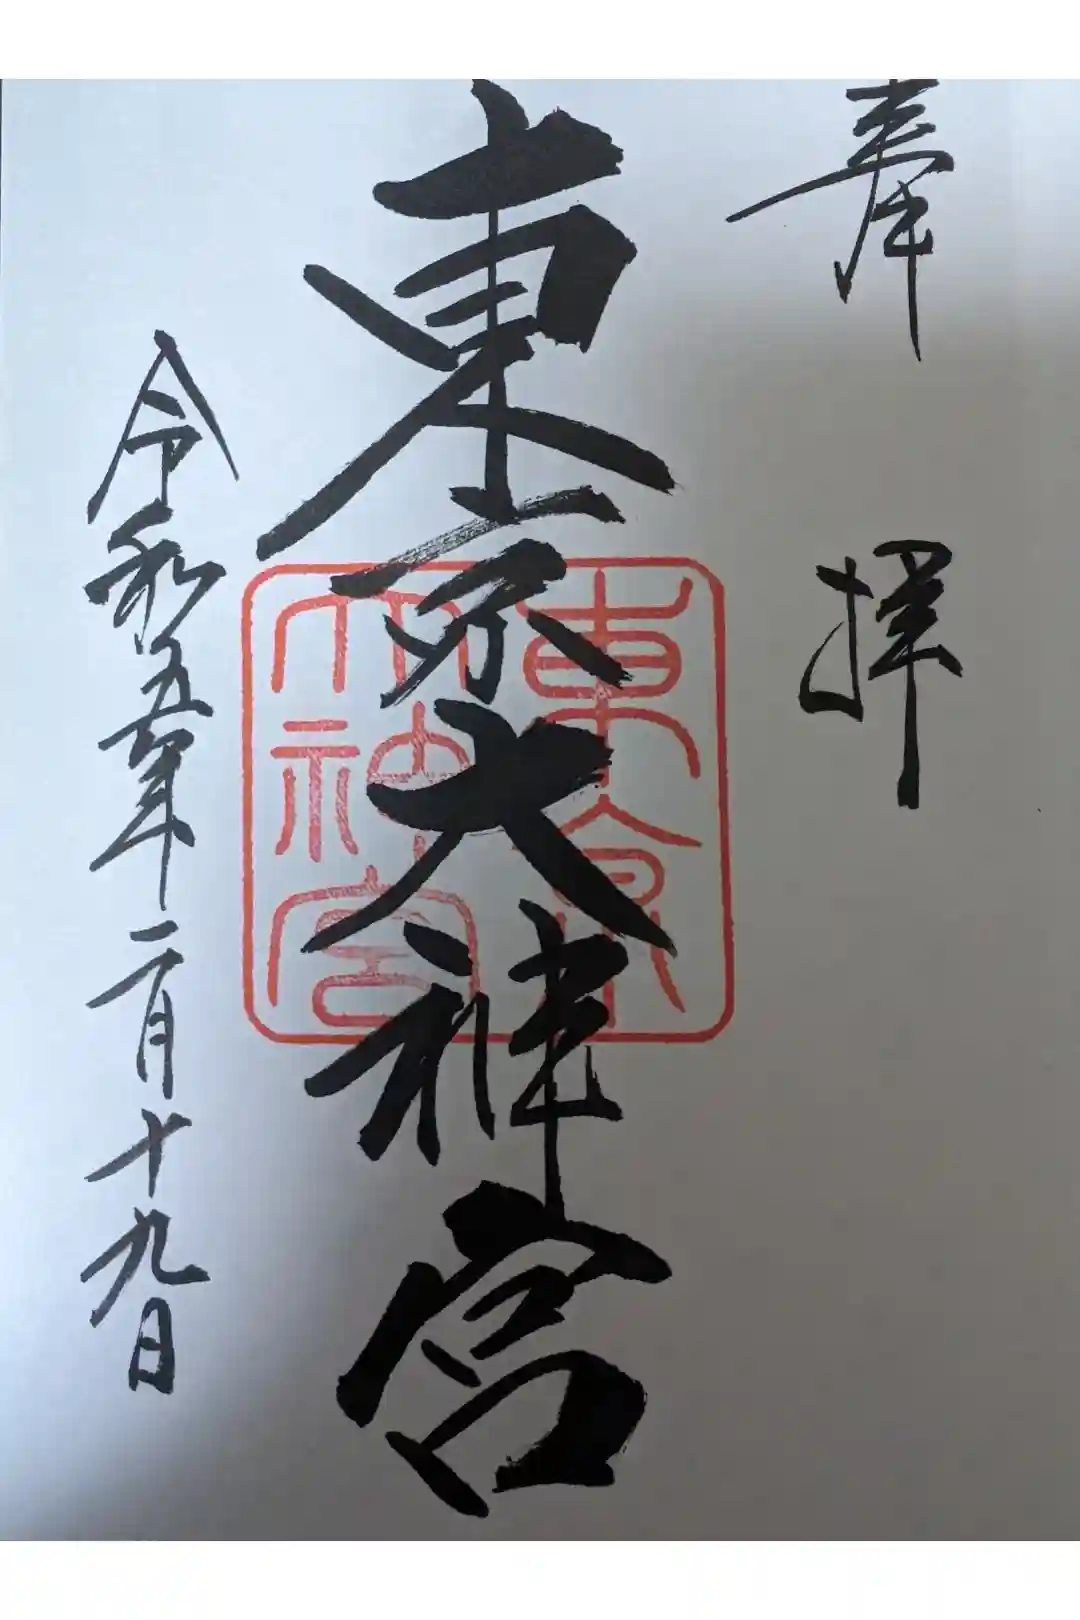 奉拝
東京大神宮
東京
大神宮
令和五年二月十九日